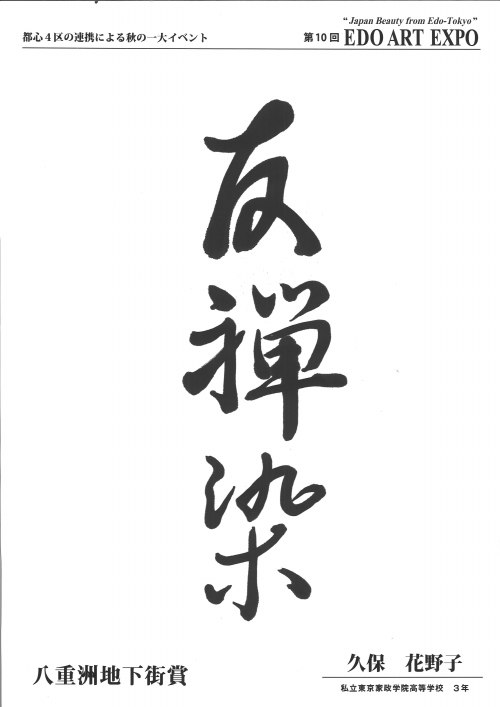 都心4区の連携による秋の一大イベント
"Japan Beauty from Edo-Tokyo"
第10回 EDO ART EXPO
友禅染
八重洲地下街賞
久保 花野子
私立東京家政学院高等学校 3年